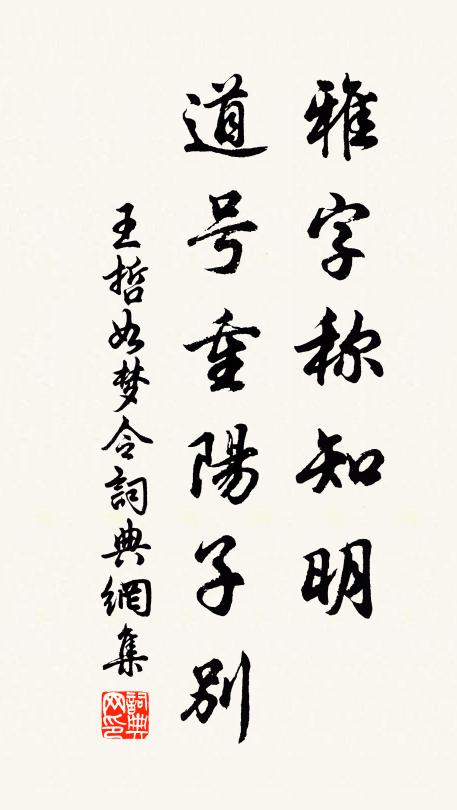 雅字称知明
道号重陽子别
王哲如梦令詞典網集
詞典网印